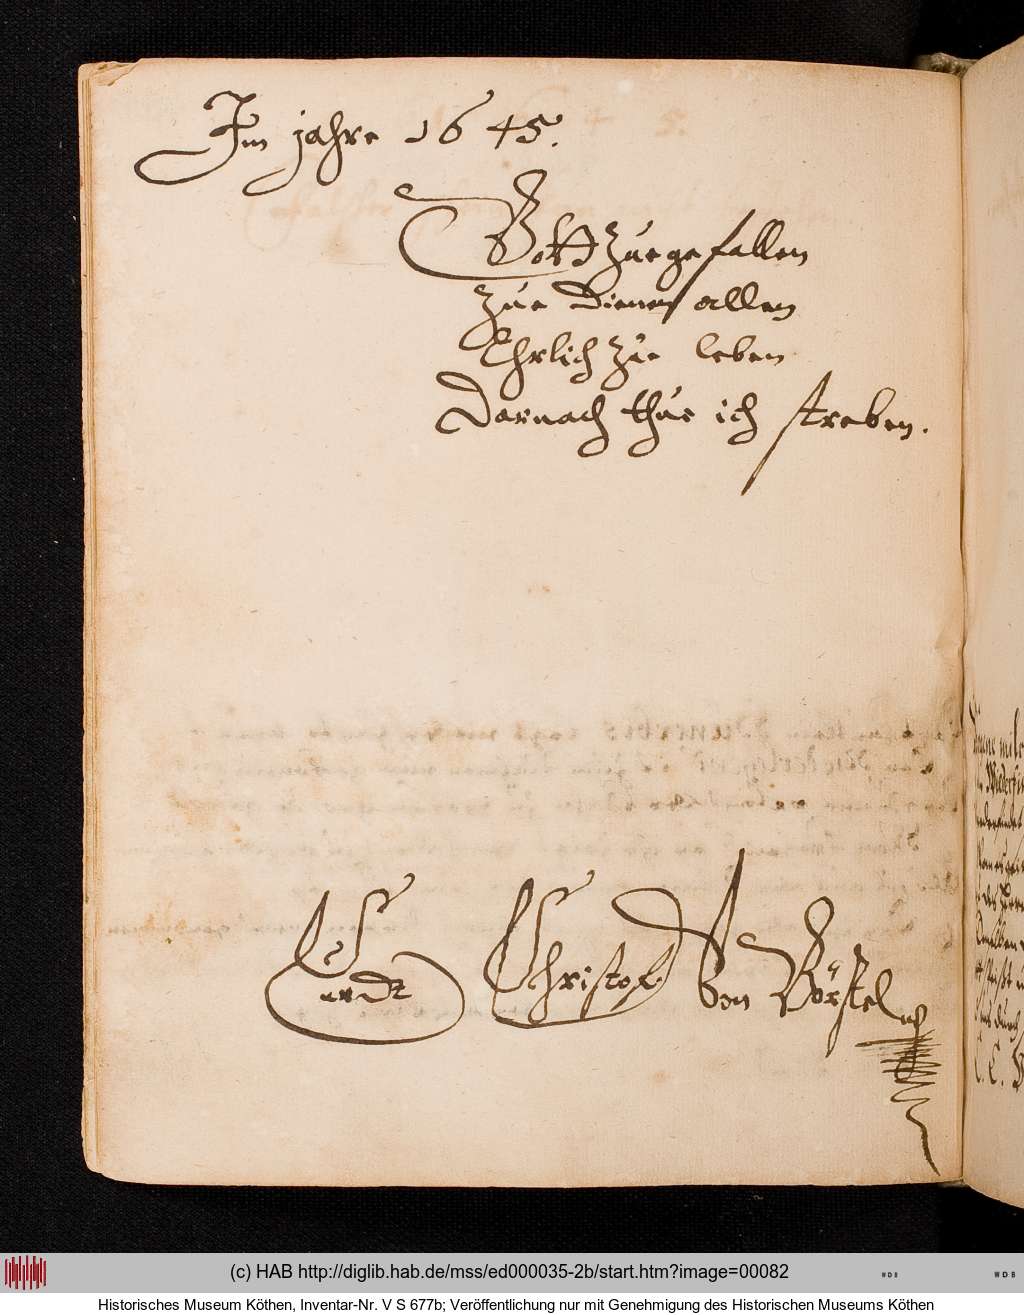 Im jahre 1645.
Gott zue gefallen
zue Dienen allen
Ehrlich zue leben
Darnach thue ich streben.
Curdt Christof Von Börstel
(c) HAB http://diglib.hab.de/mss/ed000035-2b/start.htm?image=00082
WDB
WDB
Historisches Museum Köthen, Inventar-Nr. V S 677b; Veröffentlichung nur mit Genehmigung des Historischen Museums Köthen